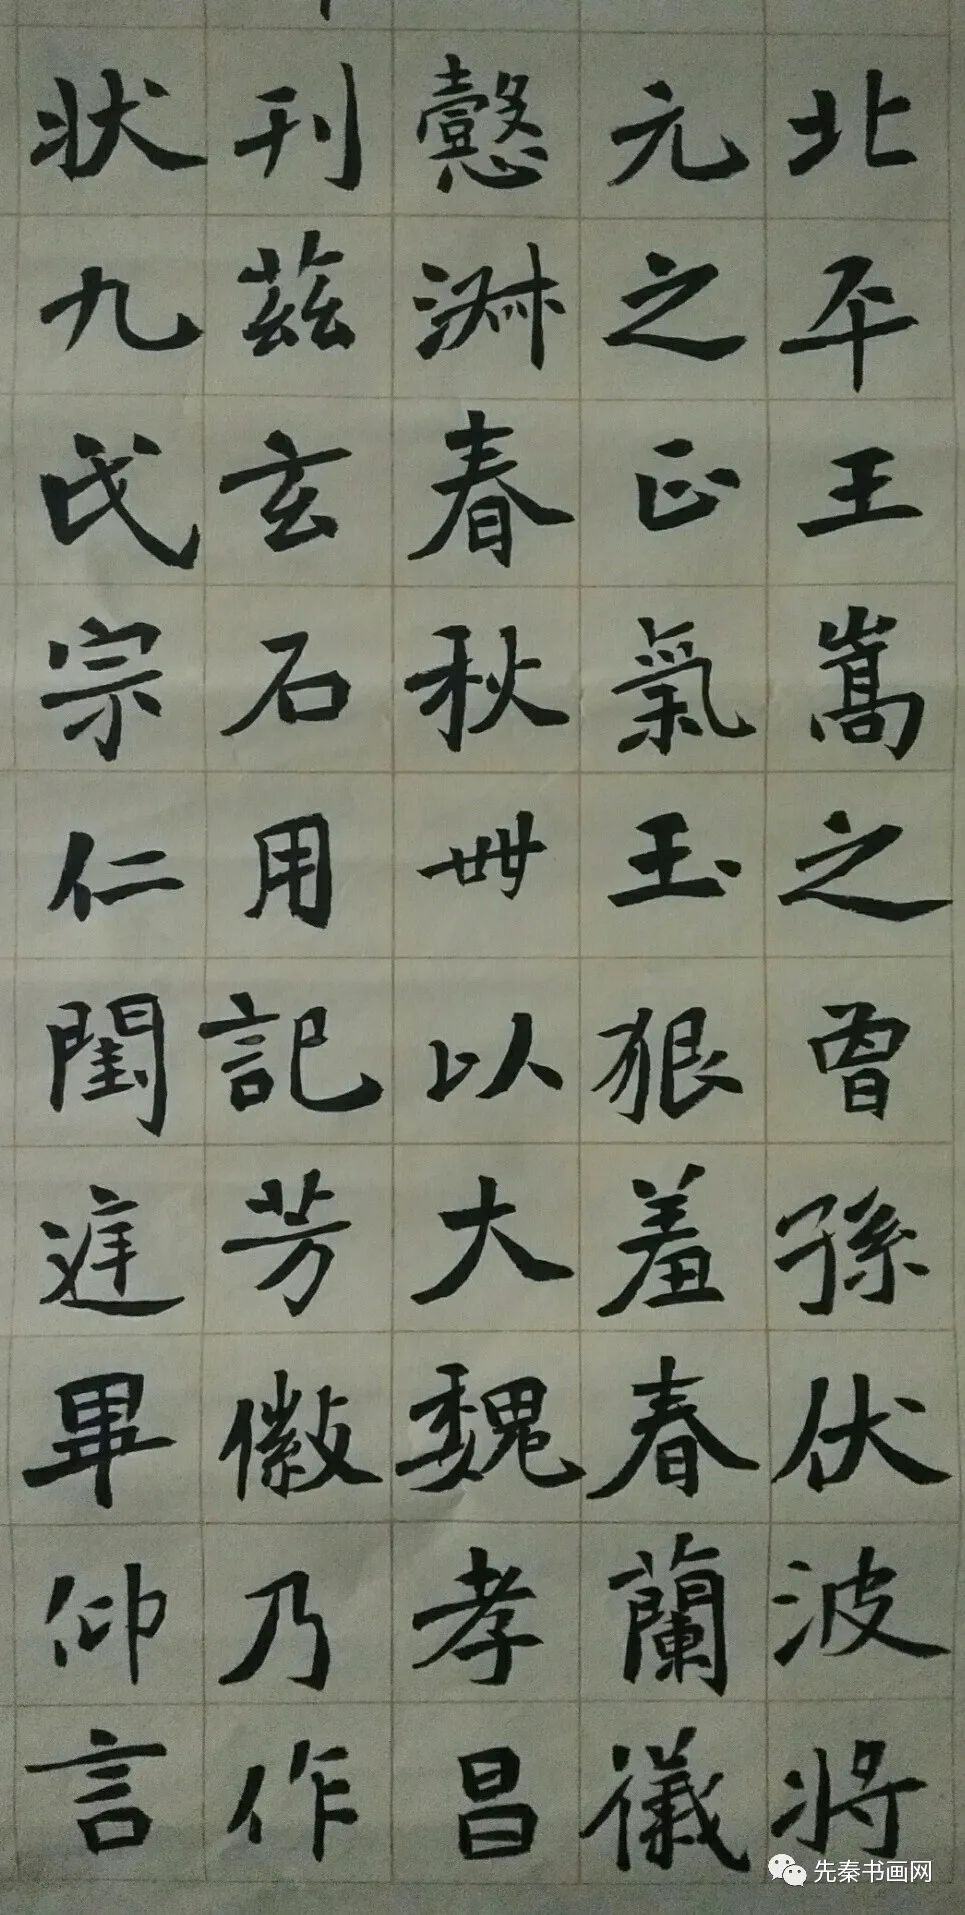 北平王嵩之曾孫伏波將
元之正氣玉狠羞春蘭儀
懿淋春秋卅以大魏孝昌
刊茲玄石用記芳徽乃作
状九氏宗仁閨逆畢仰言
先秦书画网